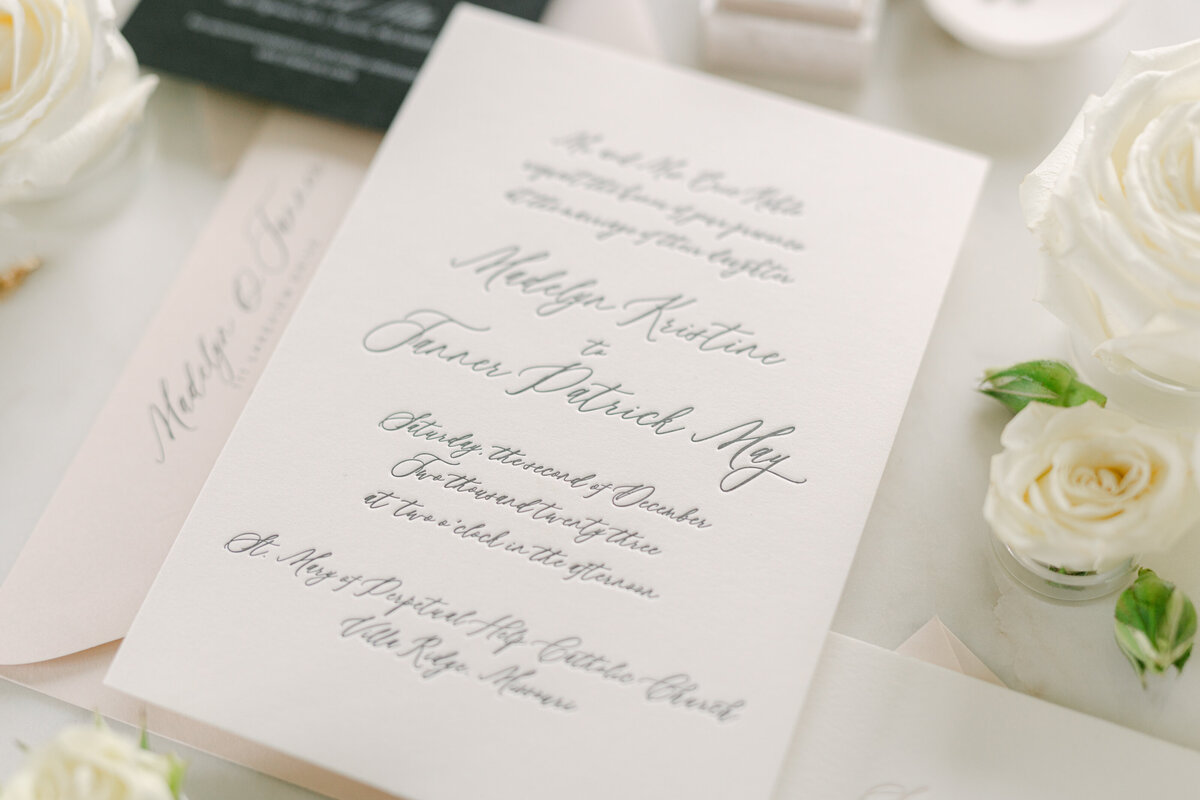 Mr. and Mrs.
request the honor of your presence
at the marriage of their daughter
Madelyn Kristine
to
Tanner Patrick May
Saturday, the second of December
Two thousand twenty three
at two o'clock in the afternoon
St. Mary of Perpetual Help Catholic Church
Villa Ridge, Missouri
Madelyn & Tanner